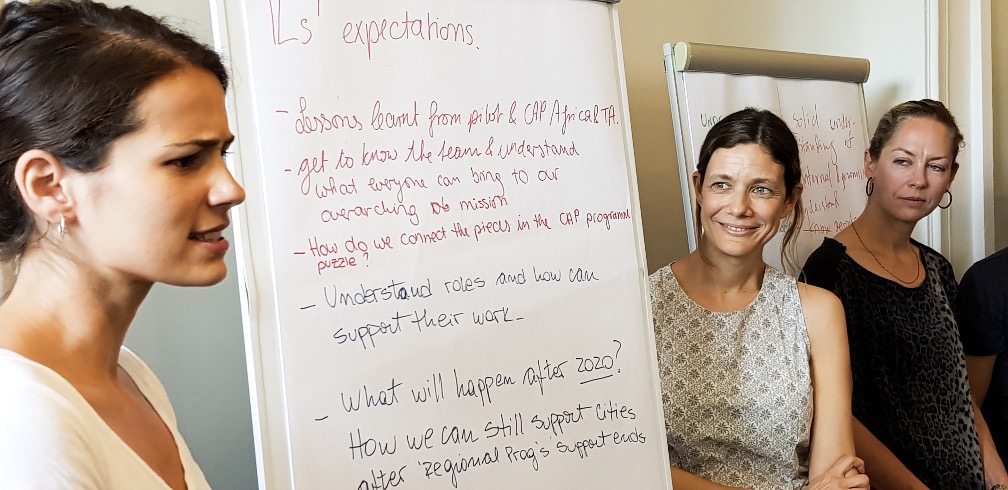 ILs' expectations.
- Lessons learnt from pilot & CAP/Africa & TA.
- get to know the team & understand
what everyone can bring to our
overarching mission
- How do we connect the pieces in the CAP programme
puzzle?
- Understand roles and how can
support their work
- What will happen after 2020?
How we can still support cities
after Regional Prog's support ends
solid under-
standing of
understand